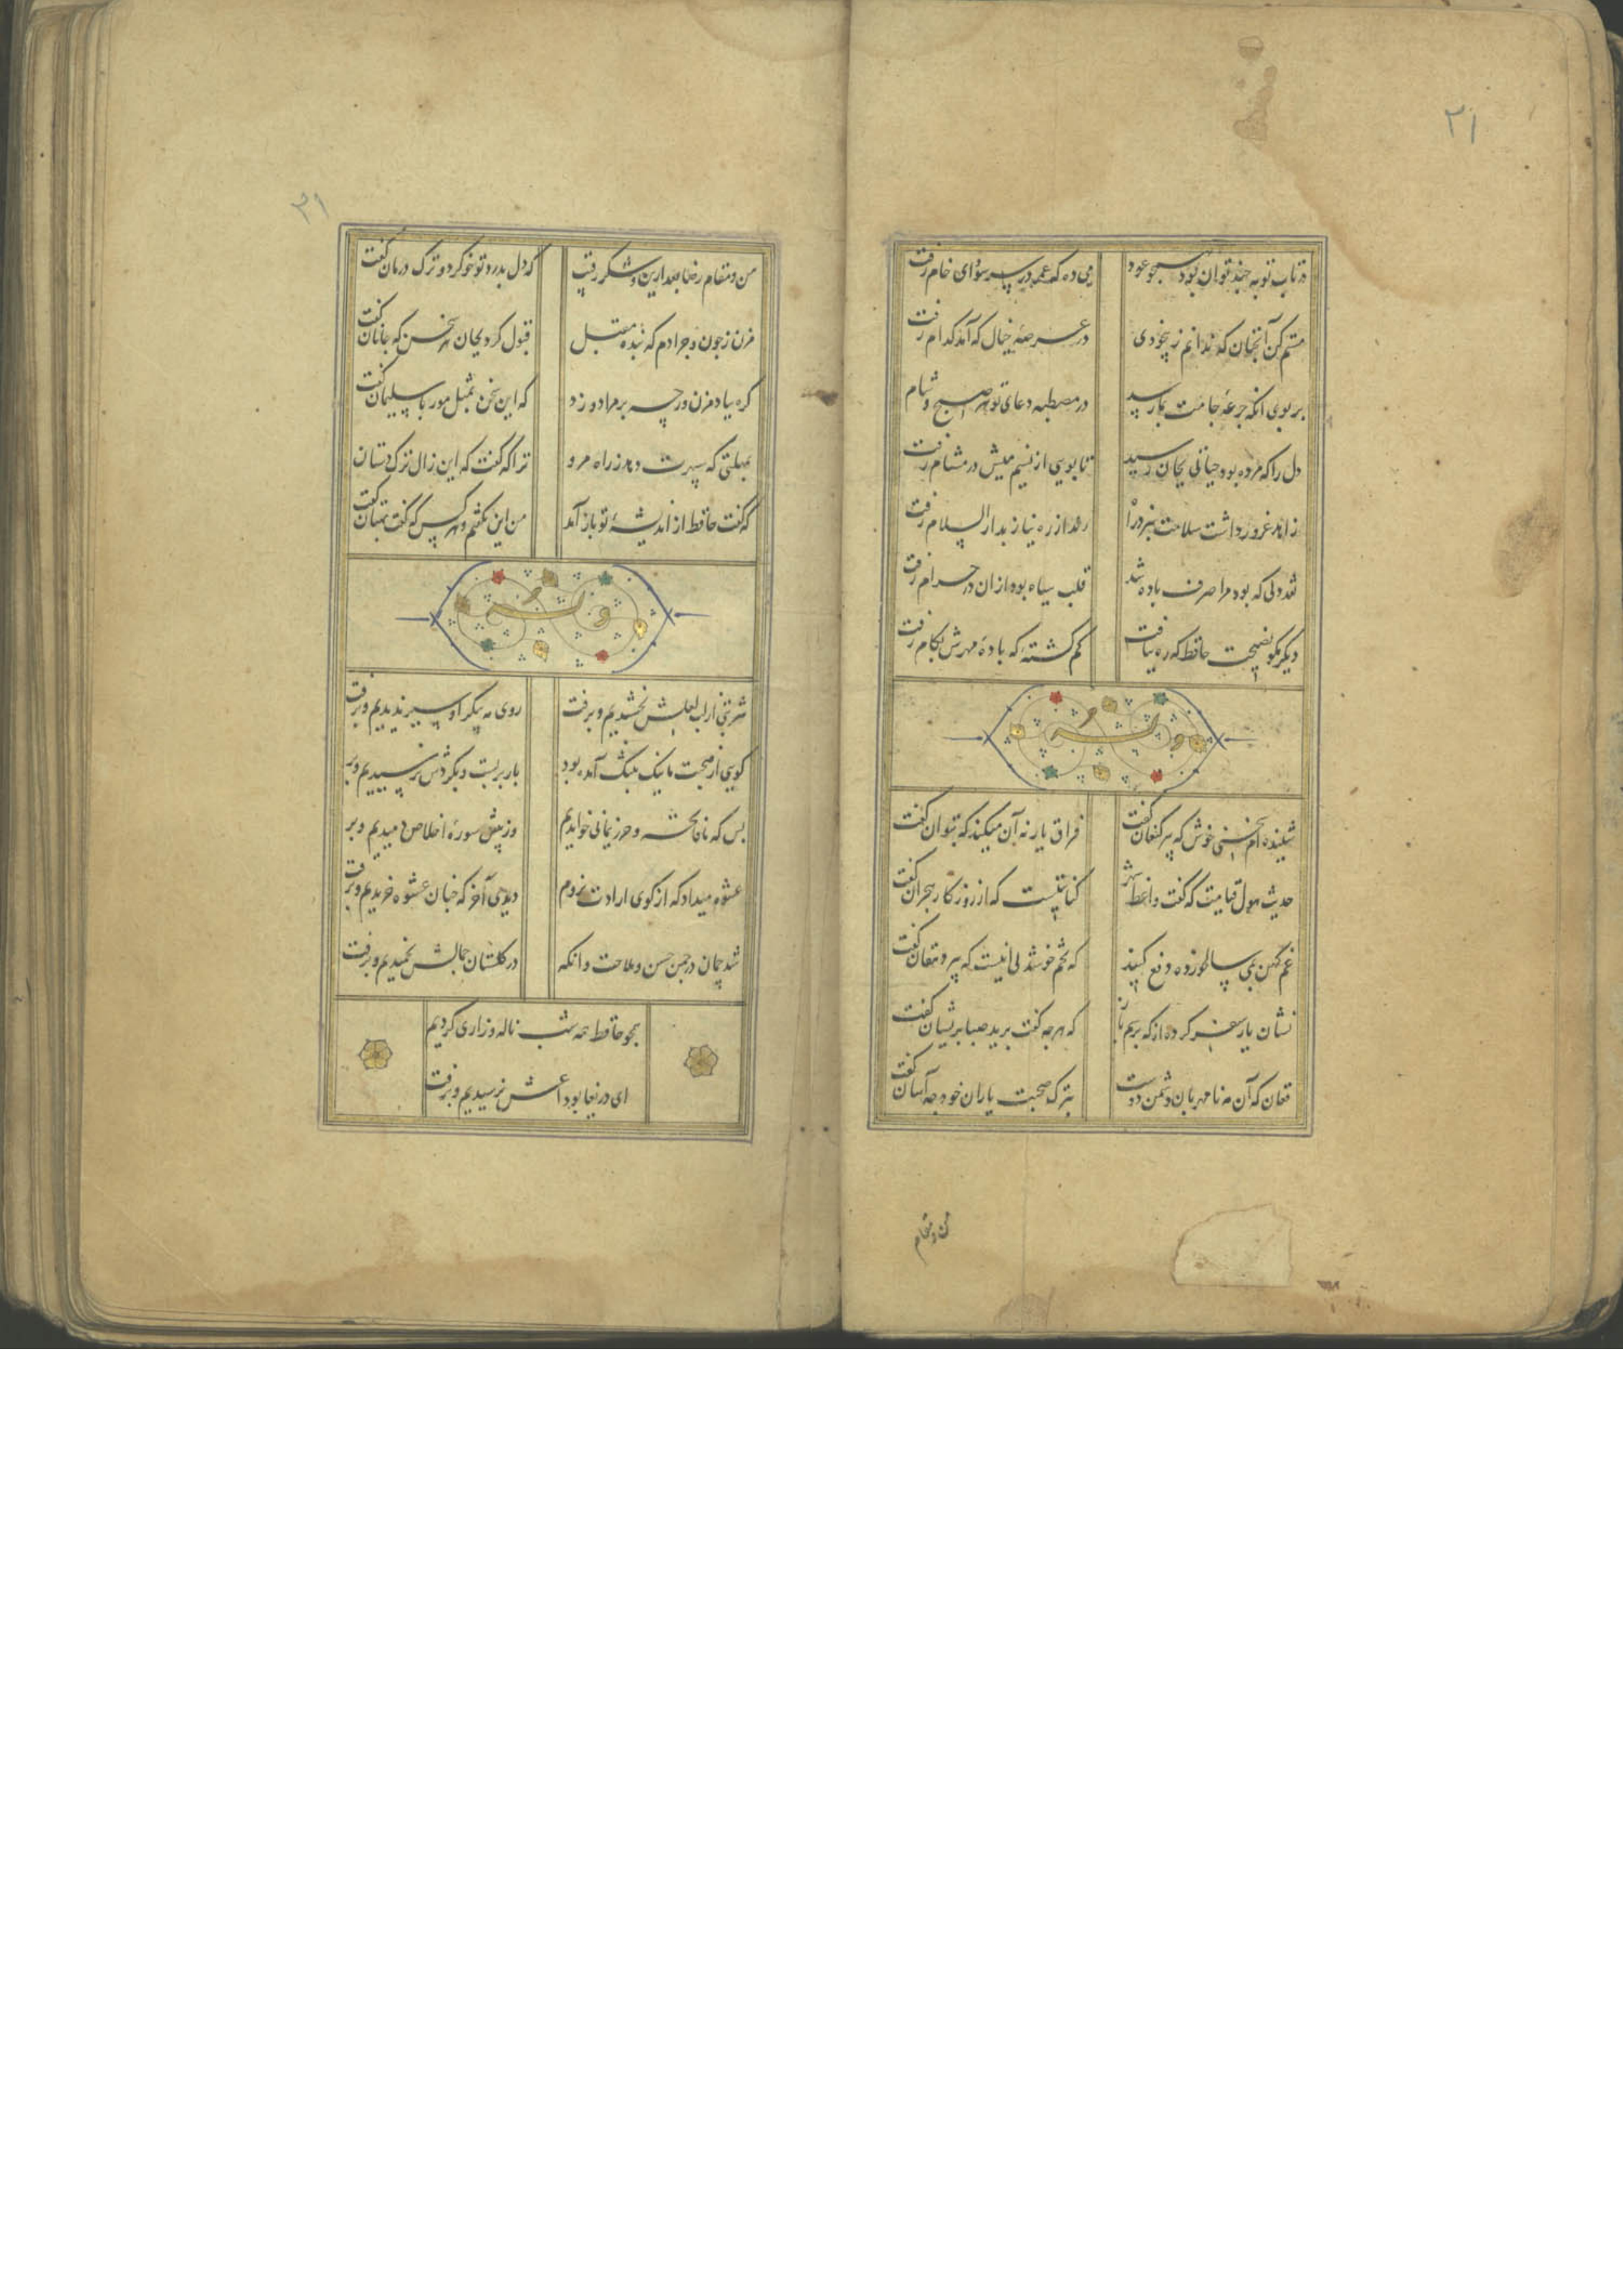 ۲۱
در تاب توبه چند توان بود همچو عود
می ده که عمر در سر سودای خام رفت
مستم کن آنچنان که ندانم ز بیخودی
در عرصه خیال که آمد کدام رفت
بر بوی آنکه جرعه جامت بما رسد
در مصطبه دعای تو هر صبح و شام رفت
دل را که مرده بود حیاتی بجان رسید
تا بویی از نسیم میش در مشام رفت
زاهد غرور داشت سلامت نبرد راه
رند از ره نیاز بدار السلام رفت
نقد دلی که بود مرا صرف باده شد
قلب سیاه بود از ان در حرام رفت
دیگر مگو نصیحت حافظ که ره نیافت
گم گشته که باده مهرش بکام رفت
وله
شنیده ام سخنی خوش که پیر کنعان گفت
فراق یار نه آن میکند که بتوان گفت
حدیث هول قیامت که گفت واعظ شهر
کنایتیست که از روزگار هجران گفت
غم کهن بمی سالخورده دفع کنید
که تخم خوشدلی اینست که پیر دهقان گفت
نشان یار سفر کرده از که پرسم باز
که هرچه گفت برید صبا پریشان گفت
فغان که آن مه نامهربان دشمن دوست
بترک صحبت یاران خود چه آسان گفت
من و مقام
۲۱
من و مقام رضا بعد ازین و شکر رقیب
که دل بدرد تو خو کرد و ترک درمان گفت
مزن ز چون و چرا دم که بنده مقبل
قبول کرد بجان هر سخن که جانان گفت
گره بباد مزن ورچه بر مراد وزد
که این سخن بمثل مور با سلیمان گفت
بمهلتی که سپهرت دهد ز راه مرو
ترا که گفت که این زال ترک دستان گفت
که گفت حافظ از اندیشه تو باز آمد
من این نگفتم و هر کس که گفت بهتان گفت
وله
شربتی از لب لعلش نچشیدیم و برفت
روی مه پیکر او سیر ندیدیم و برفت
گویی از صحبت ما نیک بتنگ آمده بود
بار بربست و بگردش نرسیدیم و بر
بس که ما فاتحه و حرز یمانی خواندیم
وز پیش سوره اخلاص دمیدیم و بر
عشوه میداد که از کوی ارادت نروم
دیدی آخر که چنان عشوه خریدیم و برفت
شد چمان در چمن حسن و ملاحت وانگه
در گلستان جمالش نچمیدیم و برفت
همچو حافظ همه شب ناله و زاری کردیم
ای دریغا بوداعش نرسیدیم و برفت